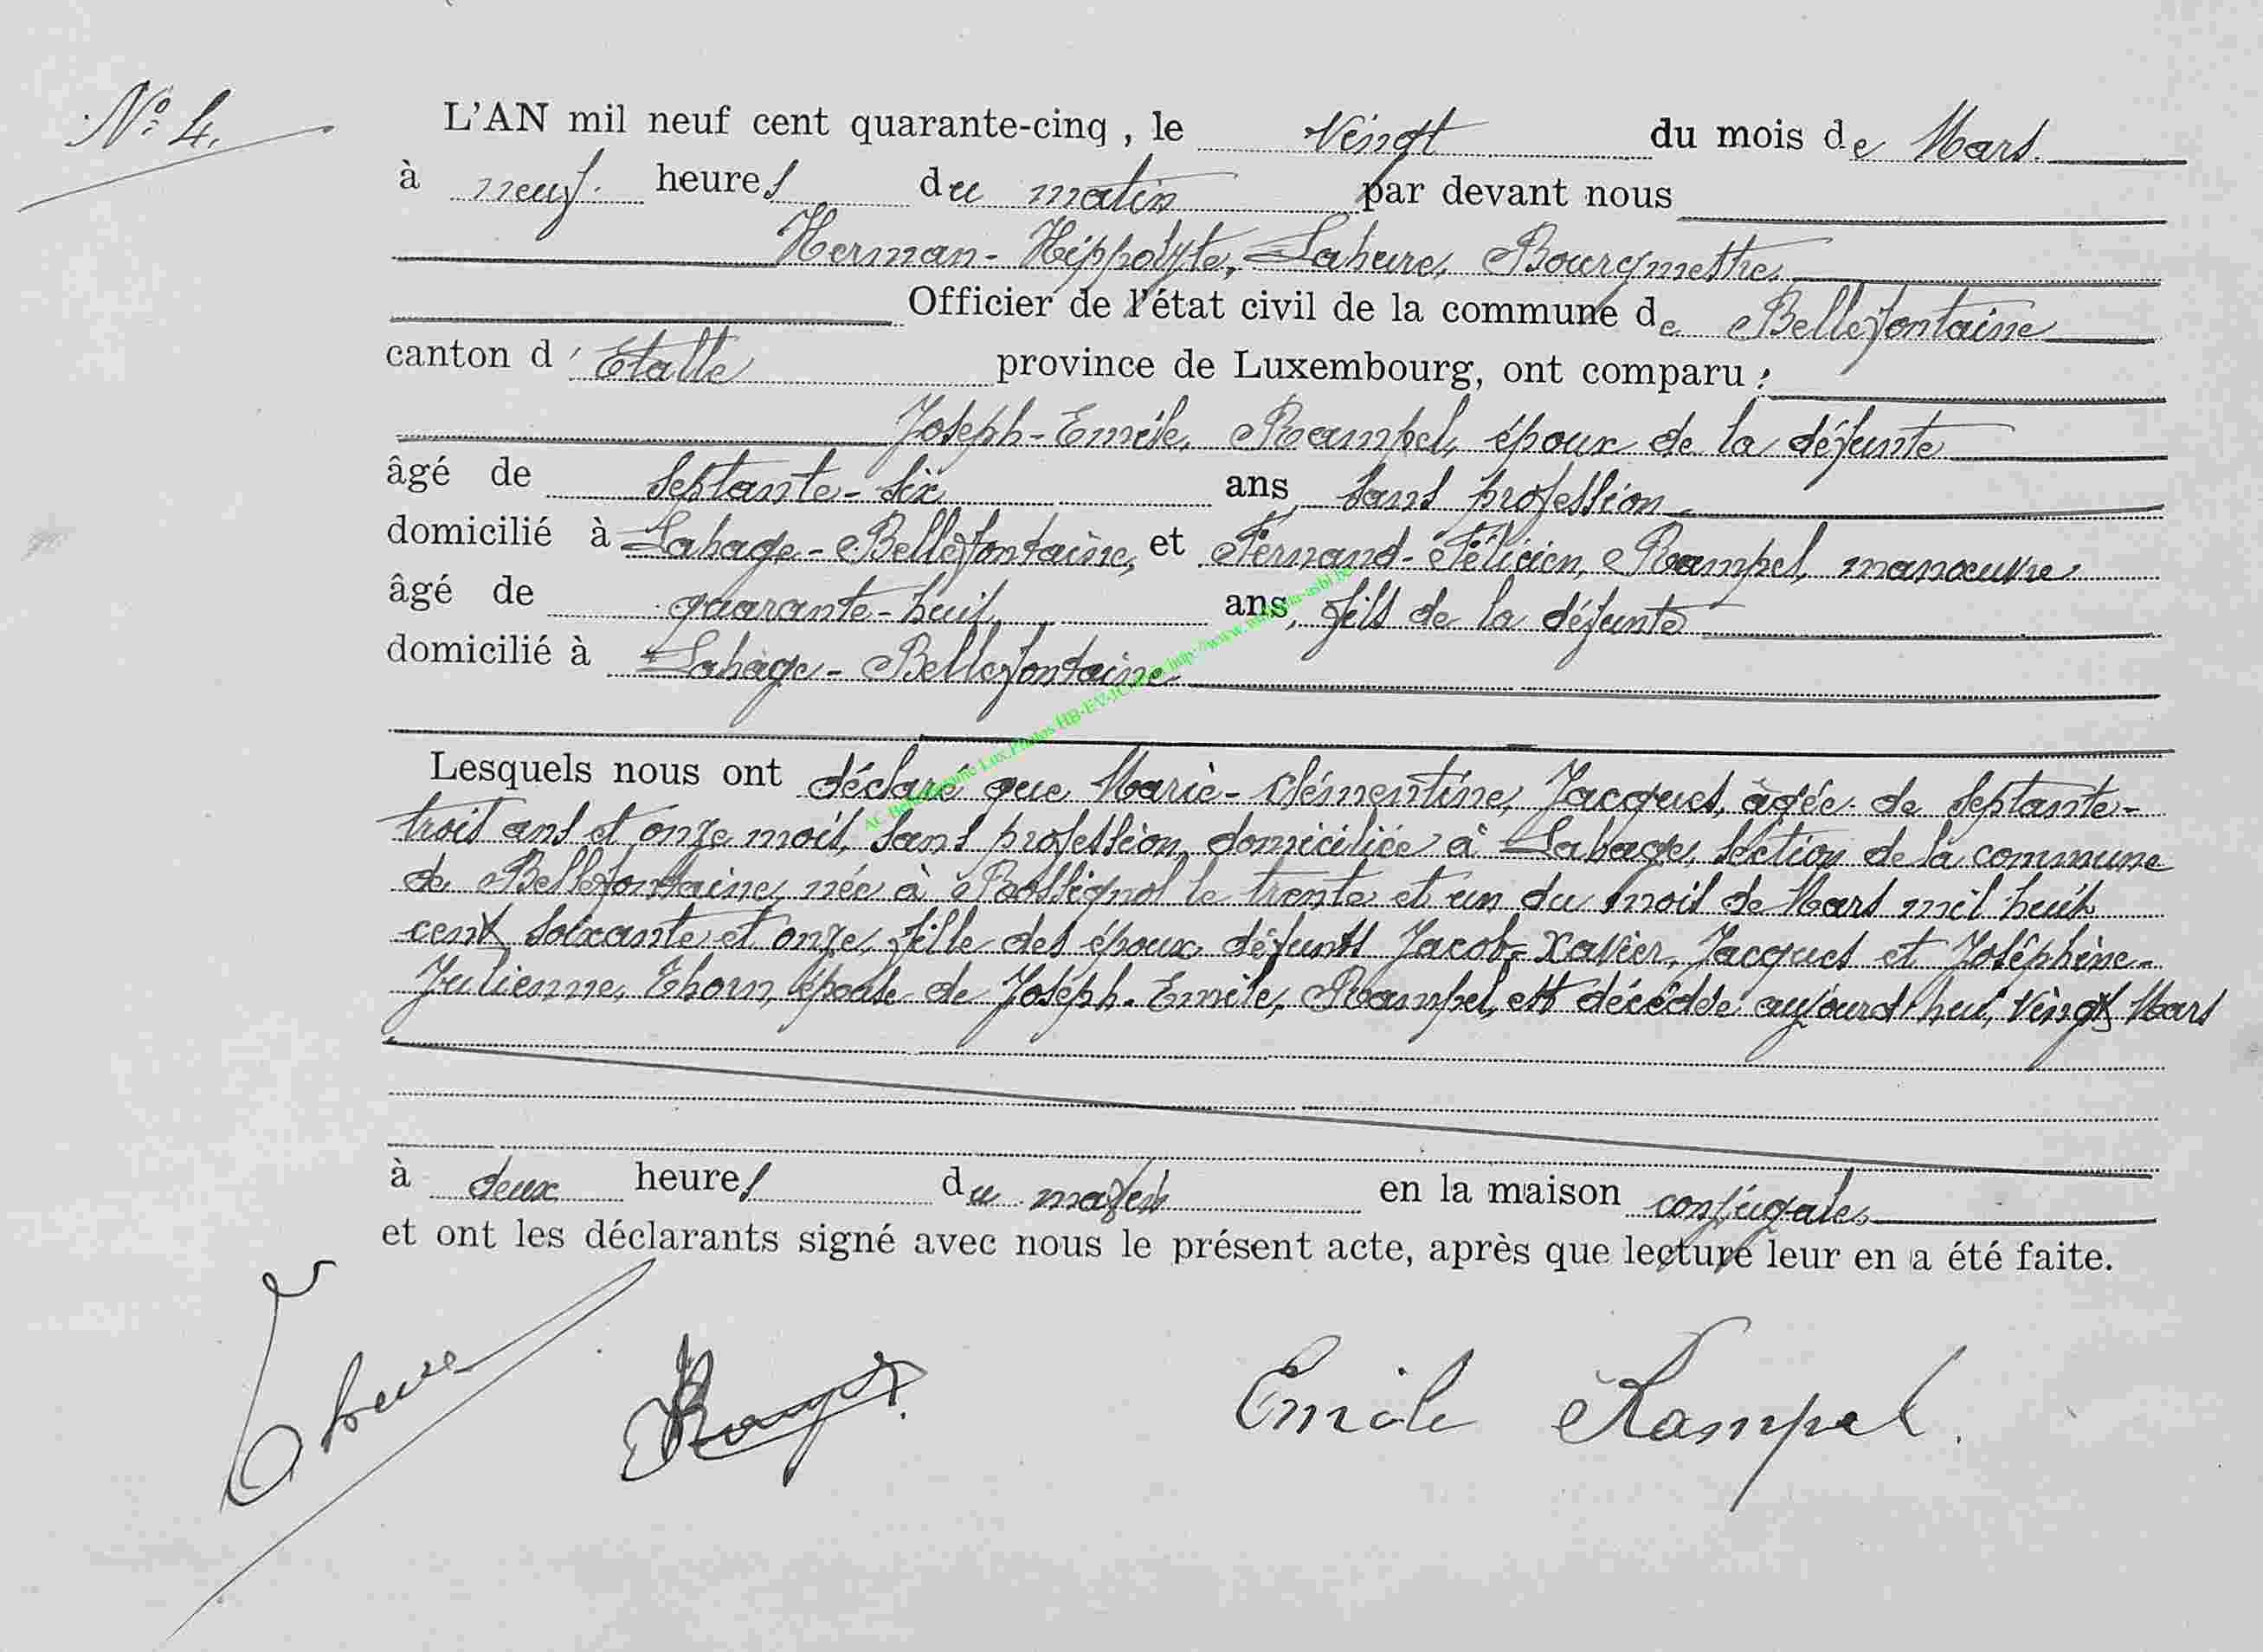 N° 4.
L'AN mil neuf cent quarante-cinq, le vingt du mois de Mars
à neuf heures du matin par devant nous
Herman-Hippolyte, Lahure, Bourgmestre
Officier de l'état civil de la commune de Bellefontaine
canton d'Etalle province de Luxembourg, ont comparu :
Joseph-Emile, Rampel, époux de la défunte
âgé de septante-six ans, sans profession
domicilié à Lahage-Bellefontaine, et Fernand-Félicien, Rampel, manœuvre
âgé de quarante-huit ans, fils de la défunte
domicilié à Lahage-Bellefontaine
Lesquels nous ont déclaré que Marie-Clémentine, Jacques, âgée de septante-
trois ans et onze mois, sans profession, domiciliée à Lahage, section de la commune
de Bellefontaine, née à Rossignol le trente et un du mois de Mars mil huit
cent soixante et onze, fille des époux défunts Jacob-Xavier, Jacques et Joséphine-
Julienne, Thorn, épouse de Joseph-Emile, Rampel, est décédée aujourd'hui, vingt Mars
à deux heures du matin en la maison conjugale
et ont les déclarants signé avec nous le présent acte, après que lecture leur en a été faite.
Emile Rampel.